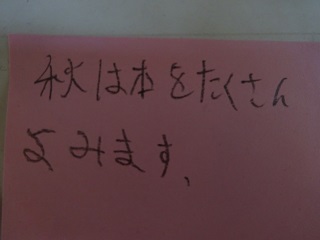 秋は本をたくさん
よみます、